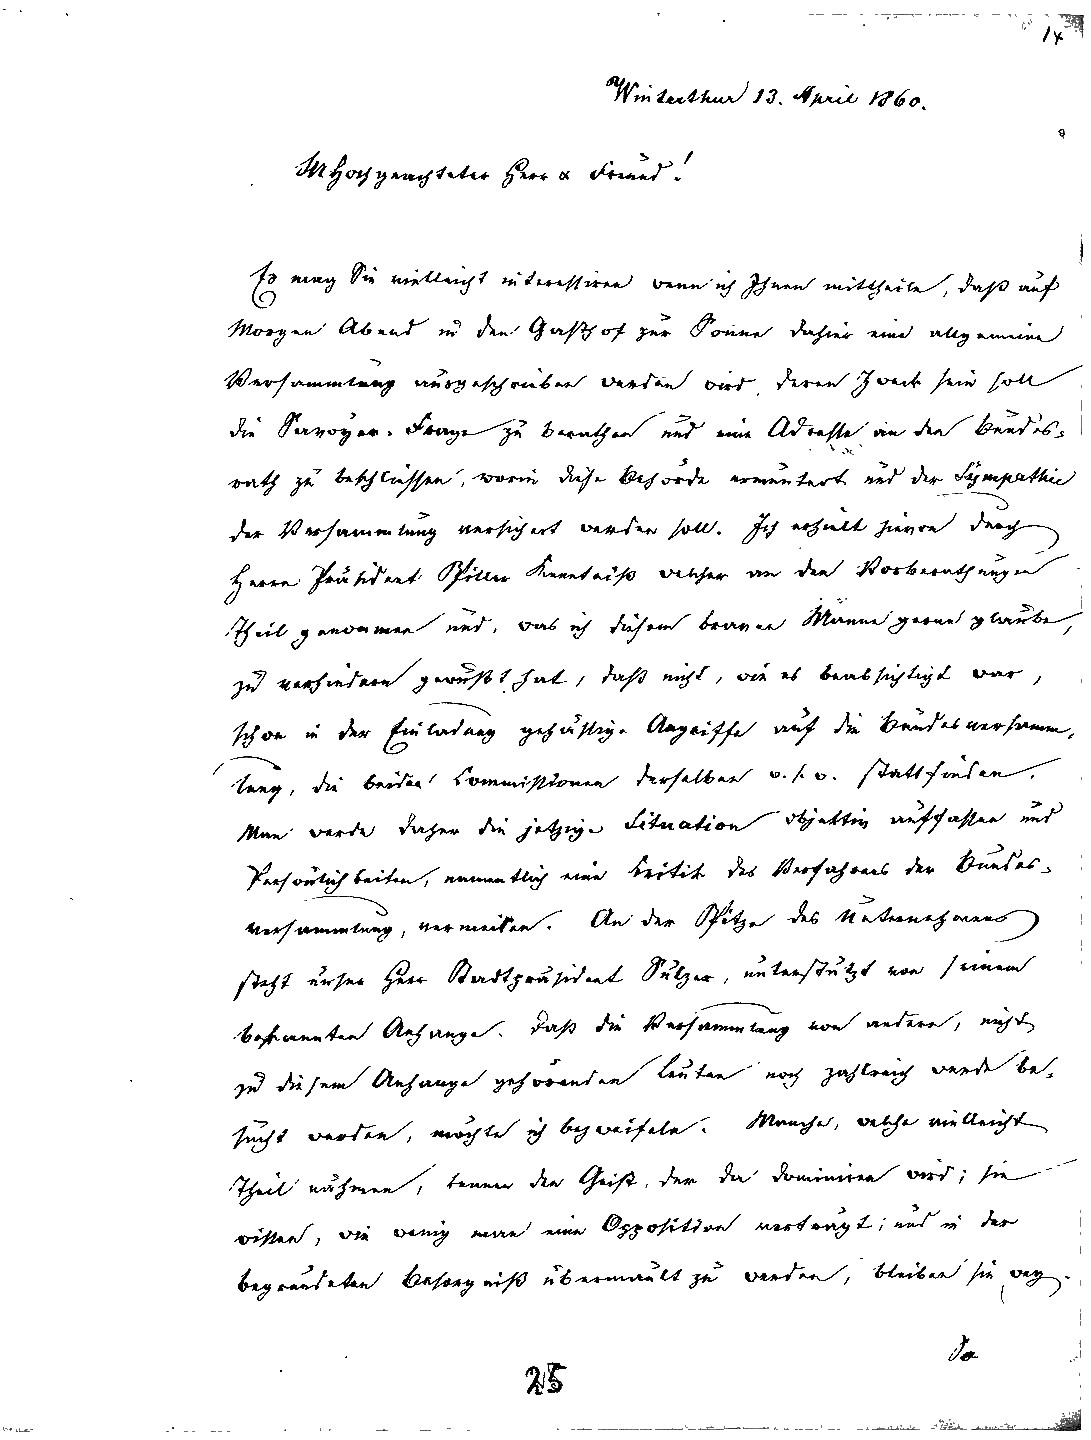 14
Winterthur 13. April 1860.
Hochgeachteter Herr & Freund!
Es mag Sie vielleicht interessiren wenn ich Ihnen mittheile, daß auf
Morgen Abend in den Gasthof zur Sonne dahier eine allgemeine
Versammlung ausgeschrieben werden wird, deren Zweck sein soll
die Savoyer-Frage zu berathen und eine Adresse an den Bundes-
rath zu beschliessen, worin diese Behörde ermuntert und der Sympathie
der Versammlung versichert werden soll. Ich erhielt hievon durch
Herrn Präsident Spiller Kenntniß welcher an den Vorberathungen
Theil genommen und, was ich diesem braven Manne gerne glaube,
zu verhindern gewußt hat, daß nicht, wie es beabsichtigt war,
schon in der Einladung gehässige Angriffe auf die Bundesversamm-
lung, die beiden Commissionen derselben u. s. w. stattfinden.
Man werde daher die jetzige Situation objektiv auffassen und
Persönlichkeiten, namentlich eine Kritik des Verfahrens der Bundes-
versammlung, vermeiden. An der Spitze des Unternehmens
steht unser Herr Stadtpräsident Sulzer, unterstützt von seinem
bekannten Anhange. Daß die Versammlung von andern, nicht
zu diesem Anhange gehörenden Leuten noch zahlreich werde be-
sucht werden, möchte ich bezweifeln. Manche, welche vielleicht
Theil nähmen, kennen den Geist, der da dominiren wird; sie
wissen, wie wenig man eine Opposition verträgt; und in der
begründeten Besorgniß übermault zu werden, bleiben sie weg.
Da
25